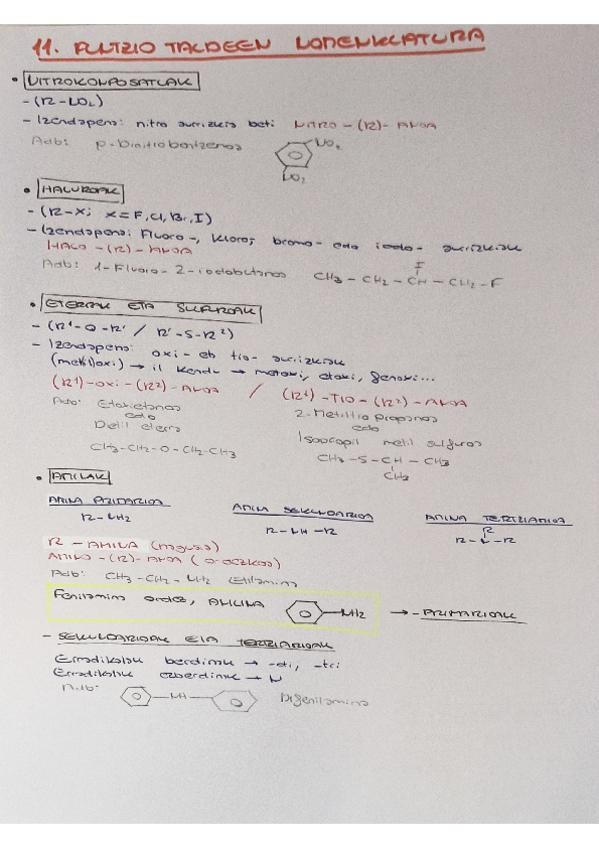 11. FUNTZIO TALDEEN NOMENKLATURA
• NITROKONPOSATUAK
- (R-NO2)
- Izendapena: nitro aurrizkia beti NITRO-(R)-ANOA
Adb: p-Dinitrobentzenoa
NO2
NO2
• HALUROAK
- (R-X; X=F, Cl, Br, I)
- Izendapena: Fluoro-, kloro-, bromo- edo iodo- aurrizkiak
HALO-(R)-ANOA
Adb: 1-Fluoro-2-iodobutanoa CH3-CH2-CH-CH2-F
I
• ETERAK ETA SULFUROAK
- (R1-O-R2 / R1-S-R2)
- Izendapena: oxi- eta tio- aurrizkiak
(metiloxi) → il kendu → metoxi, etoxi, fenoxi...
(R1)-OXI-(R2)-ANOA / (R1)-TIO-(R2)-ANOA
Adb: Etoxietanoa 2-Metiltio propanoa
edo edo
Dietil eterra Isopropil metil sulfuroa
CH3-CH2-O-CH2-CH3 CH3-S-CH-CH3
CH3
• AMINAK
AMINA PRIMARIOA AMINA SEKUNDARIOA AMINA TERTZIARIOA
R-NH2 R-NH-R R-N-R
R
R-AMINA (nagusia)
AMINO-(R)-ANOA (ordezkoa)
Adb: CH3-CH2-NH2 Etilamina
Fenilamina ordez, ANILINA NH2 → - PRIMARIOAK
- SEKUNDARIOAK ETA TERTZIARIOAK
Erradikalak berdinak → -di, -tri
Erradikalak ezberdinak → N
Adb: NH Difenilamina